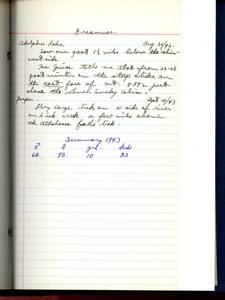 Oreamnos.
Adolphus Lake Aug 29/43.
Saw one goat 1½ miles below the cabin
west side.
Mr. Guise tells me that from 20-25
goat winter on the steep slides on
the east face of mt. 8592 just
above the Smoky cabin.
Jasper Sept 10/43
Very large lick on W side of river
on Lick creek a few miles above
the Athabasca falls lick.
Summary 1943
♂ ♀ yrl. kids
66. 96. 10 32